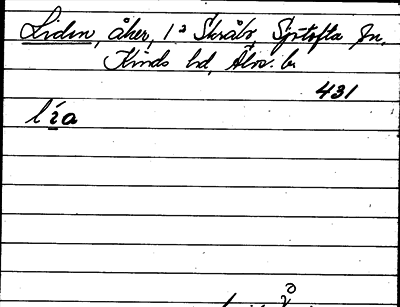 Liden, åker, 1ª Skråbo, Sjötofta sn,
Kinds hd, Älvs. l.
431
lía